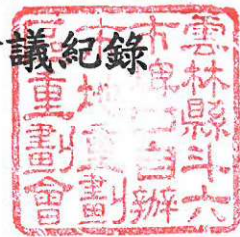 議紀錄
雲林縣斗六
市自辦
市地重劃
區重劃會